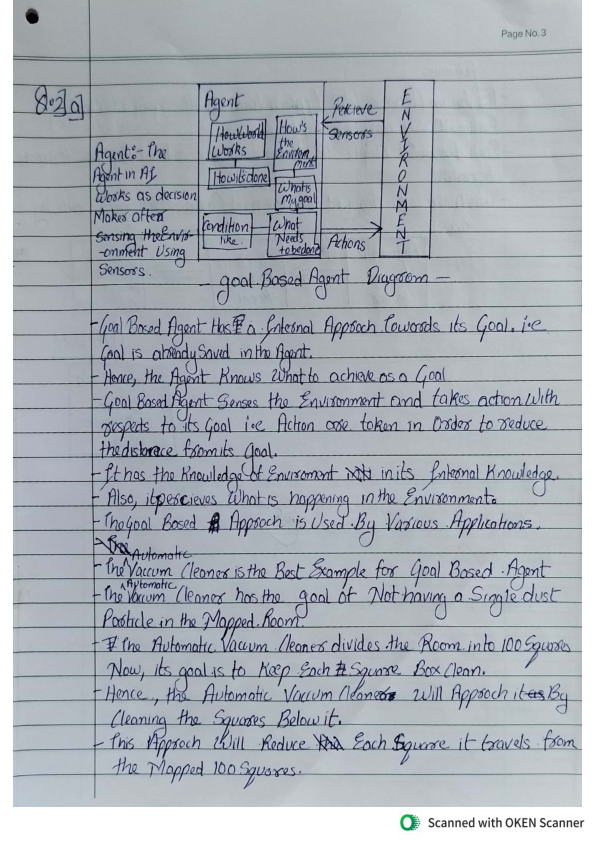 Page No. 3
Q.2] a]
Agent
How World
Works
How its done
Condition
like.
How's
the
Environ
ment
What is
My goal
What
Needs
to be done
Percieve
Sensors
Actions
ENVIRONMENT
Agent:- The
Agent in AI
works as decision
Maker after
Sensing the Envir-
-onment Using
Sensors.
- Goal Based Agent Diagram -
- Goal Based Agent Has a Internal Approch towards its Goal. i.e
Goal is already Saved in the Agent.
- Hence, the Agent Knows What to achieve as a Goal
- Goal Based Agent Senses the Environment and takes action With
respects to its Goal i.e Action are taken in Order to reduce
the distance from its Goal.
- It has the Knowledge of Enviroment in its Internal Knowledge.
- Also, it percieves What is happening in the Environment.
- The Goal Based Approch is Used By Various Applications.
- The Automatic Vaccum Cleaner is the Best Example for Goal Based Agent
- The Automatic Vaccum Cleaner has the goal of Not having a Single dust
Particle in the Mapped Room.
- The Automatic Vaccum Cleaner divides the Room into 100 Squares
Now, its goal is to Keep Each Square Box Clean.
- Hence, the Automatic Vaccum Cleaner Will Approch it By
Cleaning the Squares Below it.
- This Approch Will Reduce Each Square it travels from
the Mapped 100 Squares.
Scanned with OKEN Scanner